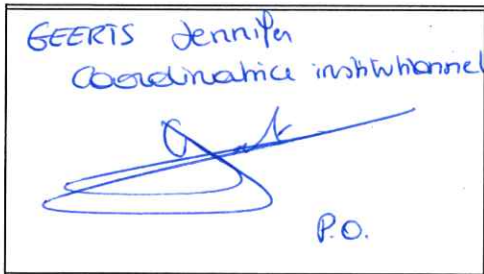 GEERTS Jennifer
Coordinatrice institutionnel
P.O.